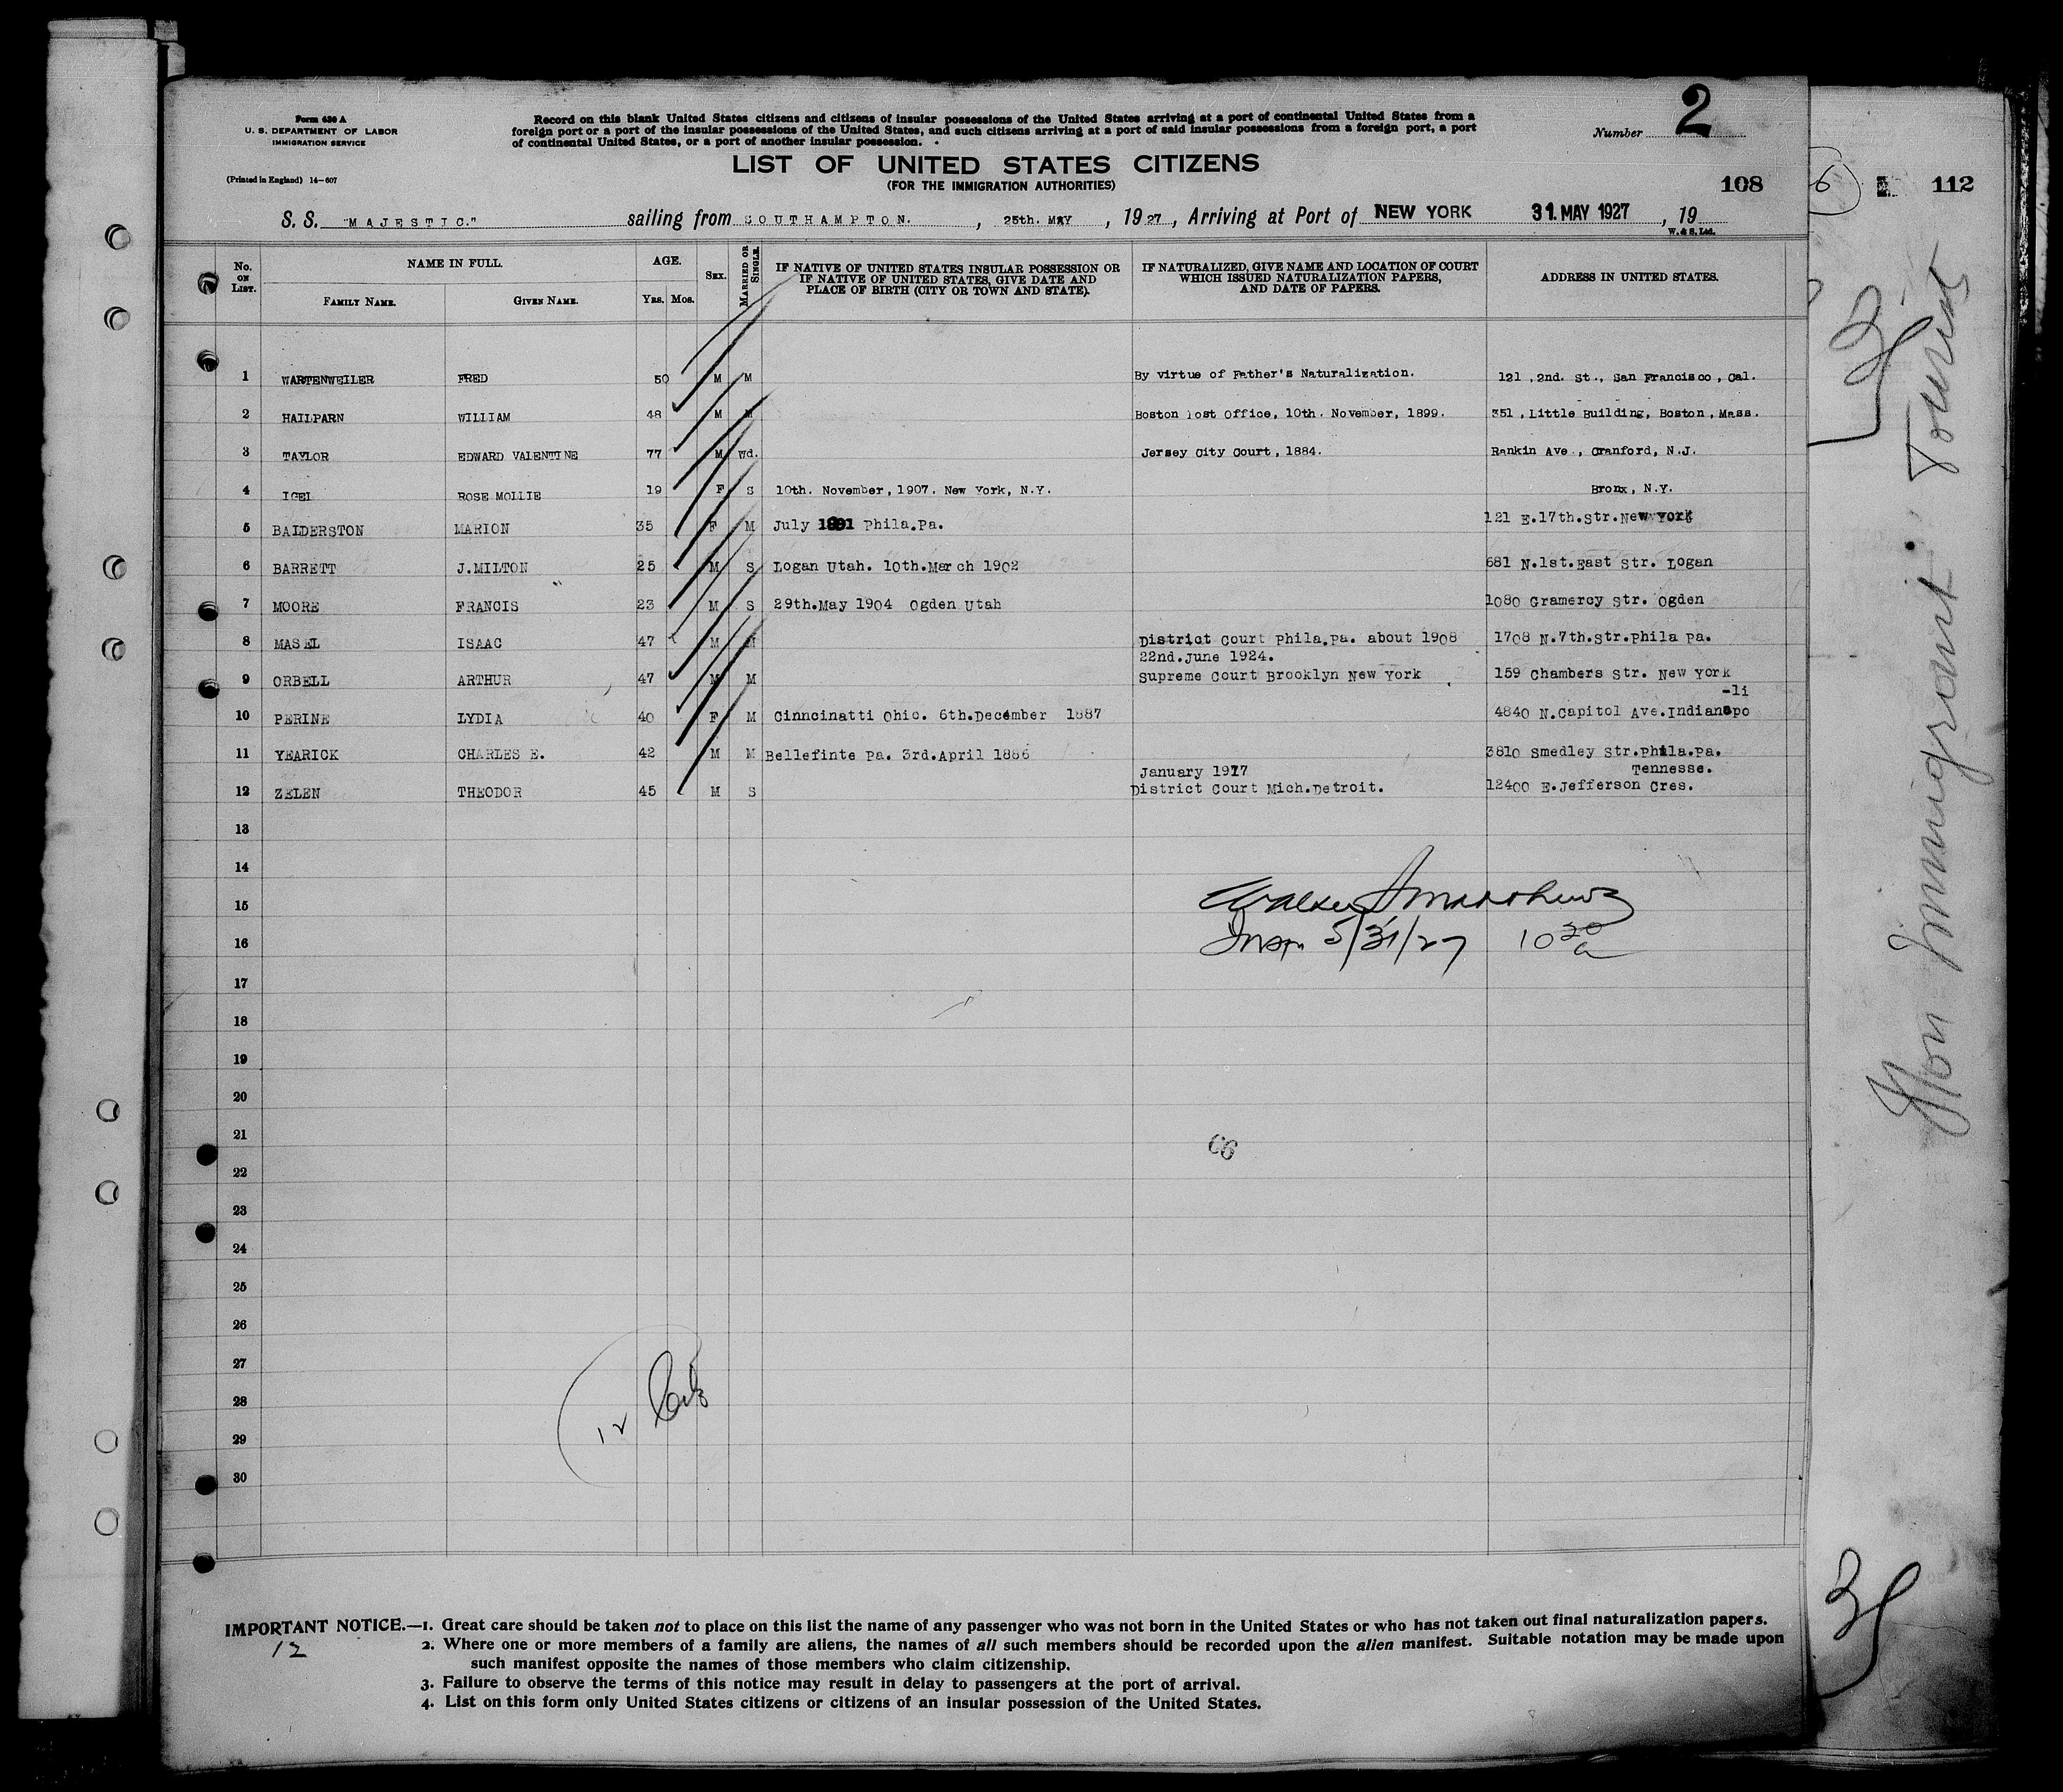 Form 630 A
U. S. DEPARTMENT OF LABOR
IMMIGRATION SERVICE
(Printed in England) 14—607
Record on this blank United States citizens and citizens of insular possessions of the United States arriving at a port of continental United States from a
foreign port or a port of the insular possessions of the United States, and such citizens arriving at a port of said insular possessions from a foreign port, a port
of continental United States, or a port of another insular possession.
Number 2
LIST OF UNITED STATES CITIZENS
(FOR THE IMMIGRATION AUTHORITIES)
108
112
S. S. "MAJESTIC." sailing from SOUTHAMPTON. , 25th. MAY , 1927 , Arriving at Port of NEW YORK 31. MAY 1927 , 19
W. & S. Ltd.
No. ON LIST. NAME IN FULL. FAMILY NAME. GIVEN NAME. AGE. Yrs. Mos. SEX. MARRIED OR SINGLE. IF NATIVE OF UNITED STATES INSULAR POSSESSION OR IF NATIVE OF UNITED STATES, GIVE DATE AND PLACE OF BIRTH (CITY OR TOWN AND STATE). IF NATURALIZED, GIVE NAME AND LOCATION OF COURT WHICH ISSUED NATURALIZATION PAPERS, AND DATE OF PAPERS. ADDRESS IN UNITED STATES.
1 WARTENWEILER FRED 50 M M By virtue of Father's Naturalization. 121 ,2nd. St., San Francisco, Cal.
2 HAILPARN WILLIAM 48 M M Boston Post Office, 10th. November, 1899. 351, Little Building, Boston, Mass.
3 TAYLOR EDWARD VALENTINE 77 M Wd. Jersey City Court, 1884. Rankin Ave., Cranford, N.J.
4 IGEL ROSE MOLLIE 19 F S 10th. November, 1907. New York, N.Y. Bronx, N.Y.
5 BALDERSTON MARION 35 F M July 1891 Phila.Pa. 121 E.17th.Str.New York
6 BARRETT J.MILTON 25 M S Logan Utah. 10th.March 1902 681 N.1st.East Str. Logan
7 MOORE FRANCIS 23 M S 29th.May 1904 Ogden Utah 1080 Gramercy Str. Ogden
8 MASEL ISAAC 47 M M District Court Phila.Pa. about 1908 1708 N.7th.Str.Phila Pa.
22nd.June 1924.
9 ORBELL ARTHUR 47 M M Supreme Court Brooklyn New York 159 Chambers Str. New York
-li
10 PERINE LYDIA 40 F M Cinncinatti Ohio. 6th.December 1887 4840 N.Capitol Ave.Indianapo
11 YEARICK CHARLES E. 42 M M Bellefinte Pa. 3rd.April 1886 3810 Smedley Str.Phila.Pa.
January 1917 Tennesse.
12 ZELEN THEODOR 45 M S District Court Mich.Detroit. 12400 E.Jefferson Cres.
13
14
15
16
17
18
19
20
21
22
23
24
25
26
27
28
29
30
Insp 5/31/27 10 30 a
66
12
IMPORTANT NOTICE.—1. Great care should be taken not to place on this list the name of any passenger who was not born in the United States or who has not taken out final naturalization papers.
12
2. Where one or more members of a family are aliens, the names of all such members should be recorded upon the alien manifest. Suitable notation may be made upon
such manifest opposite the names of those members who claim citizenship.
3. Failure to observe the terms of this notice may result in delay to passengers at the port of arrival.
4. List on this form only United States citizens or citizens of an insular possession of the United States.
Non Immigrant Tourist